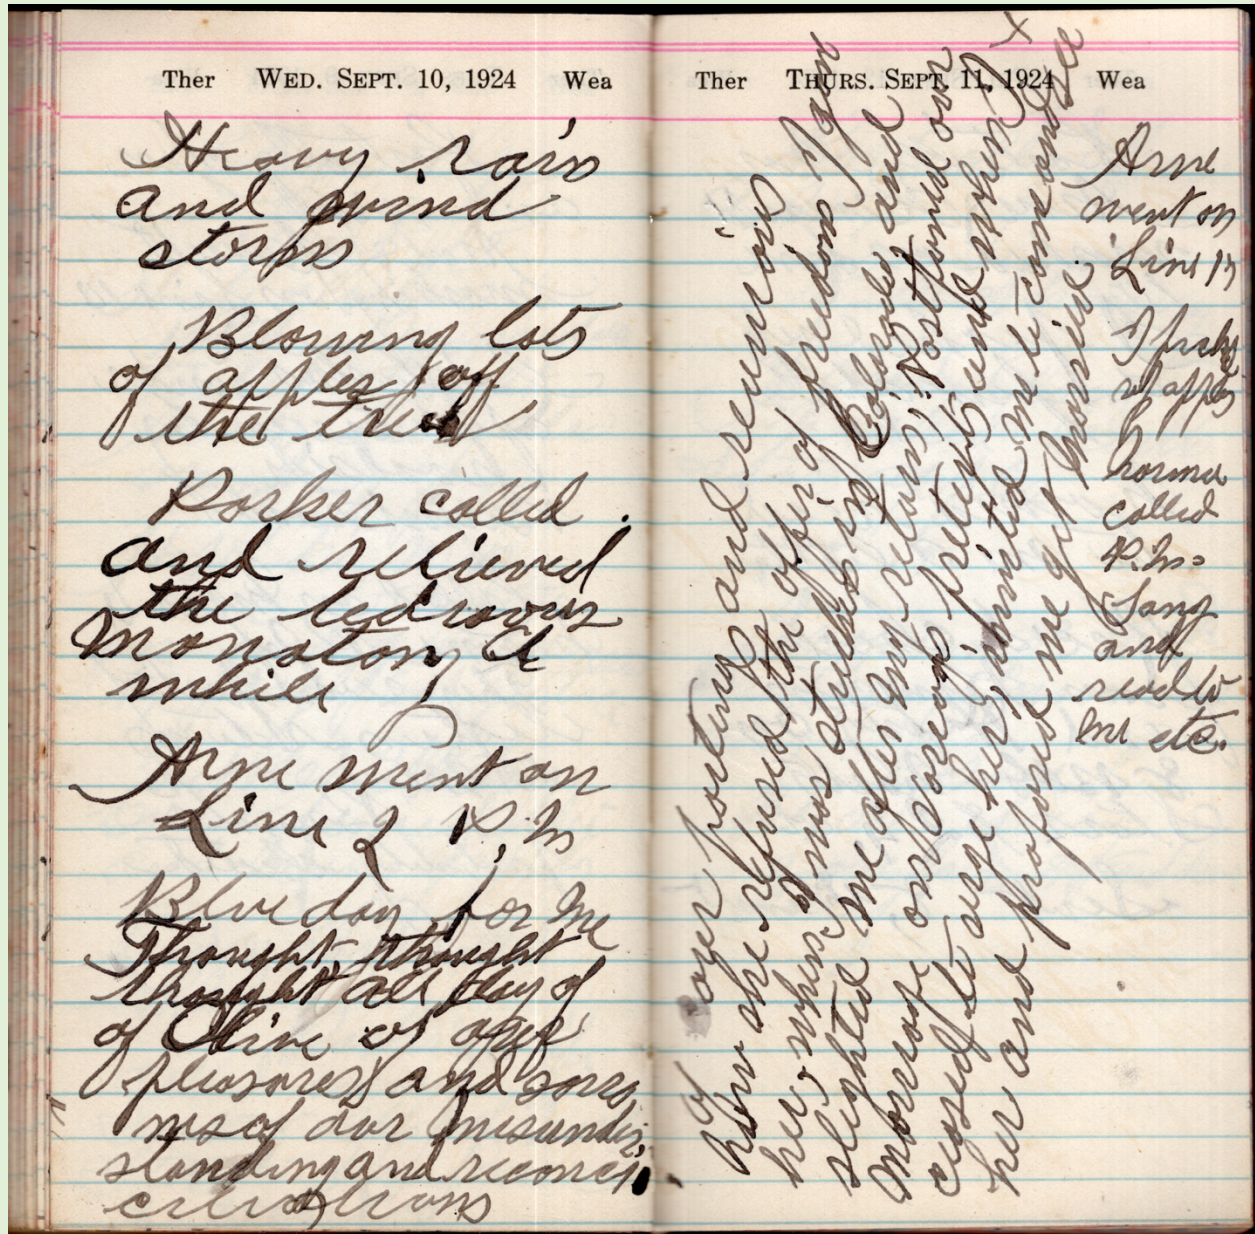 Ther WED. SEPT. 10, 1924 Wea
Heavy rain
and wind
storm
Blowing lots
of apples off
the tree
Parker called
and relieved
the
monotony a
while
Arne went on
Line 2 P.M
Blue day for me
Thought, thought
thought all day of
of Olive of ages
pleasures and sorro
ws of our misunder
standing and reconci
ciliations
Ther THURS. SEPT. 11, 1924 Wea
Of ages parting and reunions
how she refused the offer of freedom I gave
her, when I was strikes in Colorado and
slighted me after my return; Postponed our
marriage on various pretexts and when I
ceased to urge her, admitted me to come and see
her and propose we get married
x
Arne
went on
Line
I
apples
Norma
called
P.M.
Sang
and
read to
me etc.